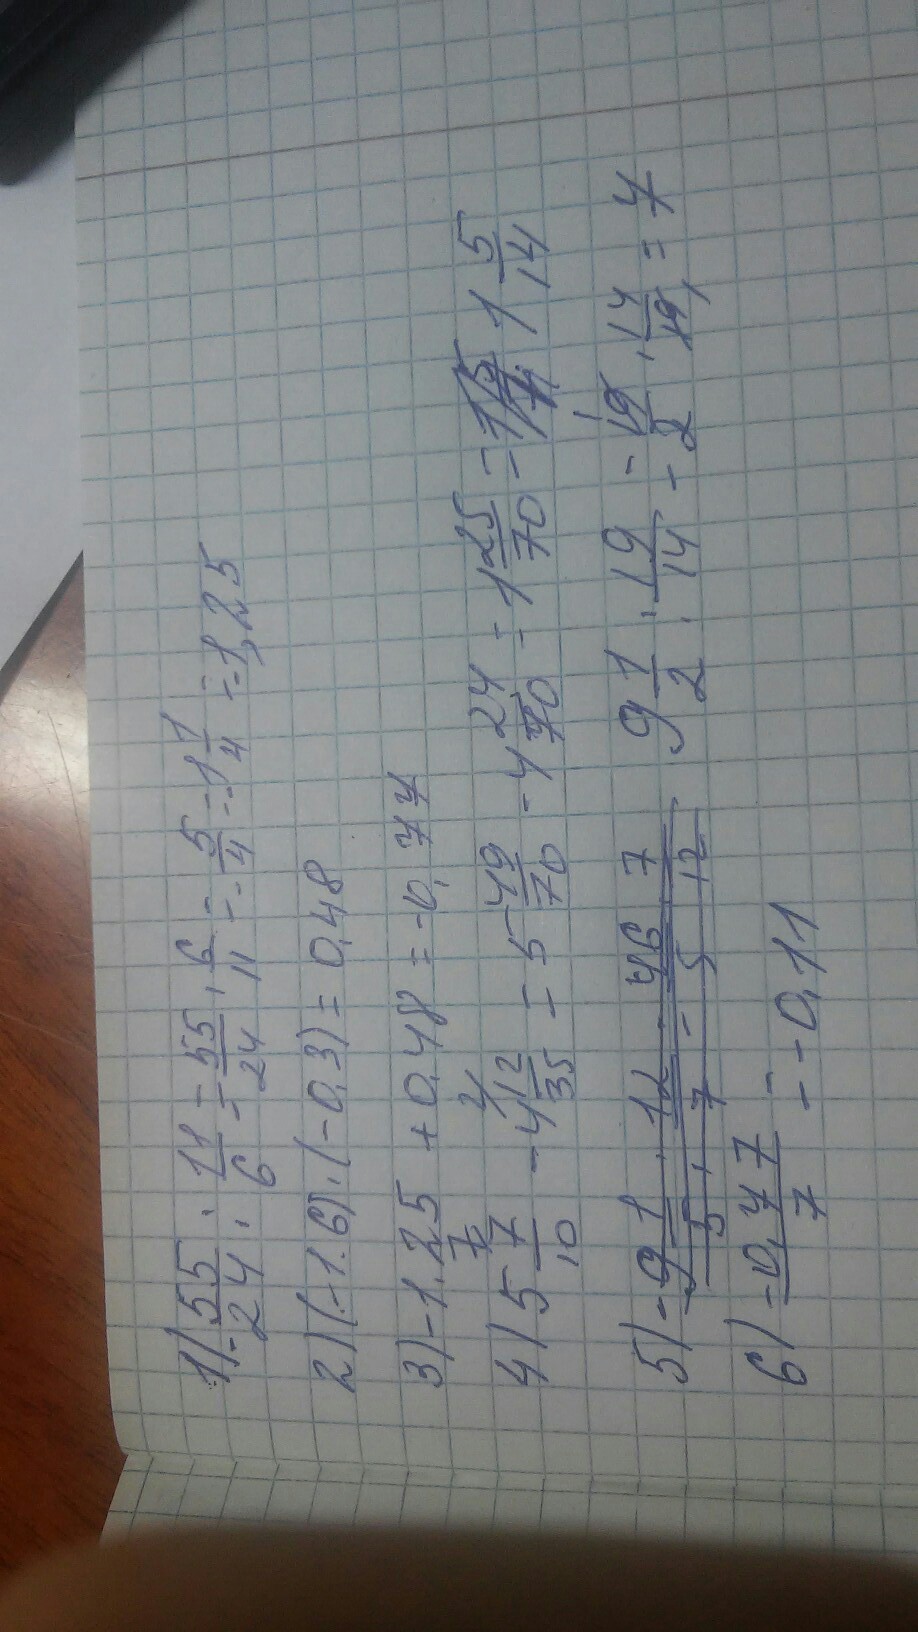 1) -55/24 : 11/6 = -55/24 · 6/11 = -5/4 = -1 1/4 = -1,25
2) (-1.6) · (-0.3) = 0,48
3) -1.25 + 0,48 = -0,77
4) 5 7/10 - 4 12/35 = 5 49/70 - 4 24/70 = 1 25/70 = 1 5/14
5) 9 1/2 : 19/14 = 19/2 · 14/19 = 7
6) -0,77/7 = -0,11